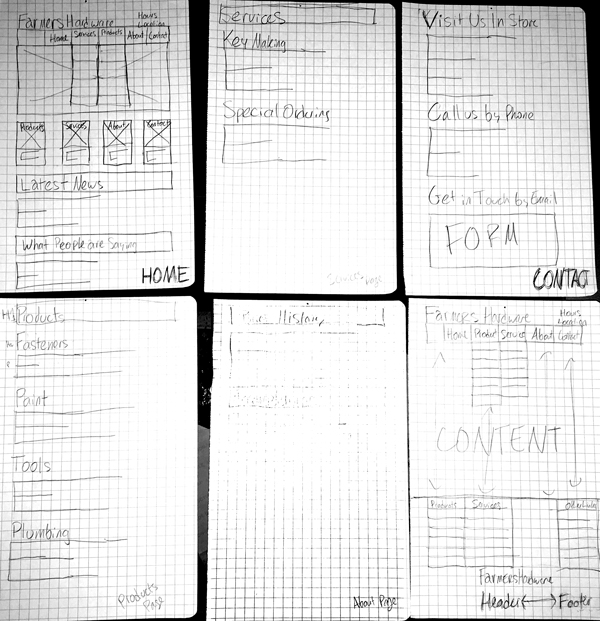 Farmers Hardware
Hours
Location
Home Services Products About Contact
Products Services About Contact
Latest News
What People are Saying
HOME
Services
Key Making
Special Ordering
Services Page
Visit Us In Store
Call us by Phone
Get in Touch by Email
FORM
CONTACT
Products
Fasteners
Paint
Tools
Plumbing
Products Page
Our History
About Page
Farmers Hardware
Hours
Location
Home Product Service About Contact
CONTENT
Products Services
Farmers Hardware
Header Footer